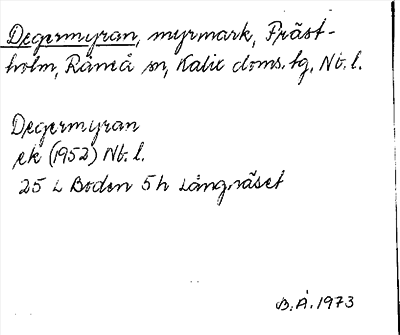 Degermyran, myrmark, Präst-
holm, Råneå sn, Kalix doms. tg, Nb. l.
Degermyran
ek (1952) Nb. l.
25 L Boden 5 h Långräset
B. Å. 1973